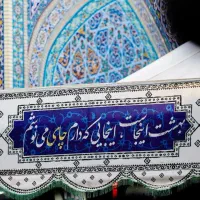 بهشت اینجاست . اینجایی که دارم چای می نوشم